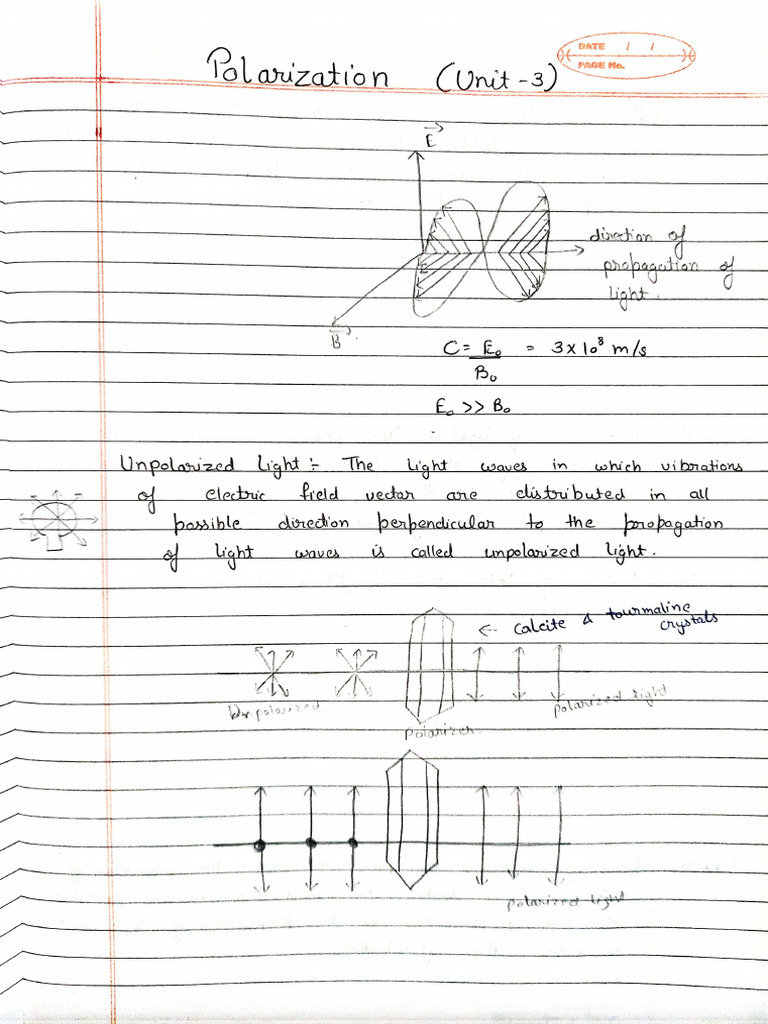 DATE / /
PAGE No.
Polarization (Unit-3)
E
direction of
propagation of
light.
B
C = E₀ = 3×10⁸ m/s
B₀
E₀ >> B₀
Unpolarized Light :- The Light waves in which vibrations
of electric field vector are distributed in all
possible direction perpendicular to the propagation
of light waves is called unpolarized light.
← calcite & tourmaline
crystals
Unpolarized
Polarized light
Polarizer.
polarized light